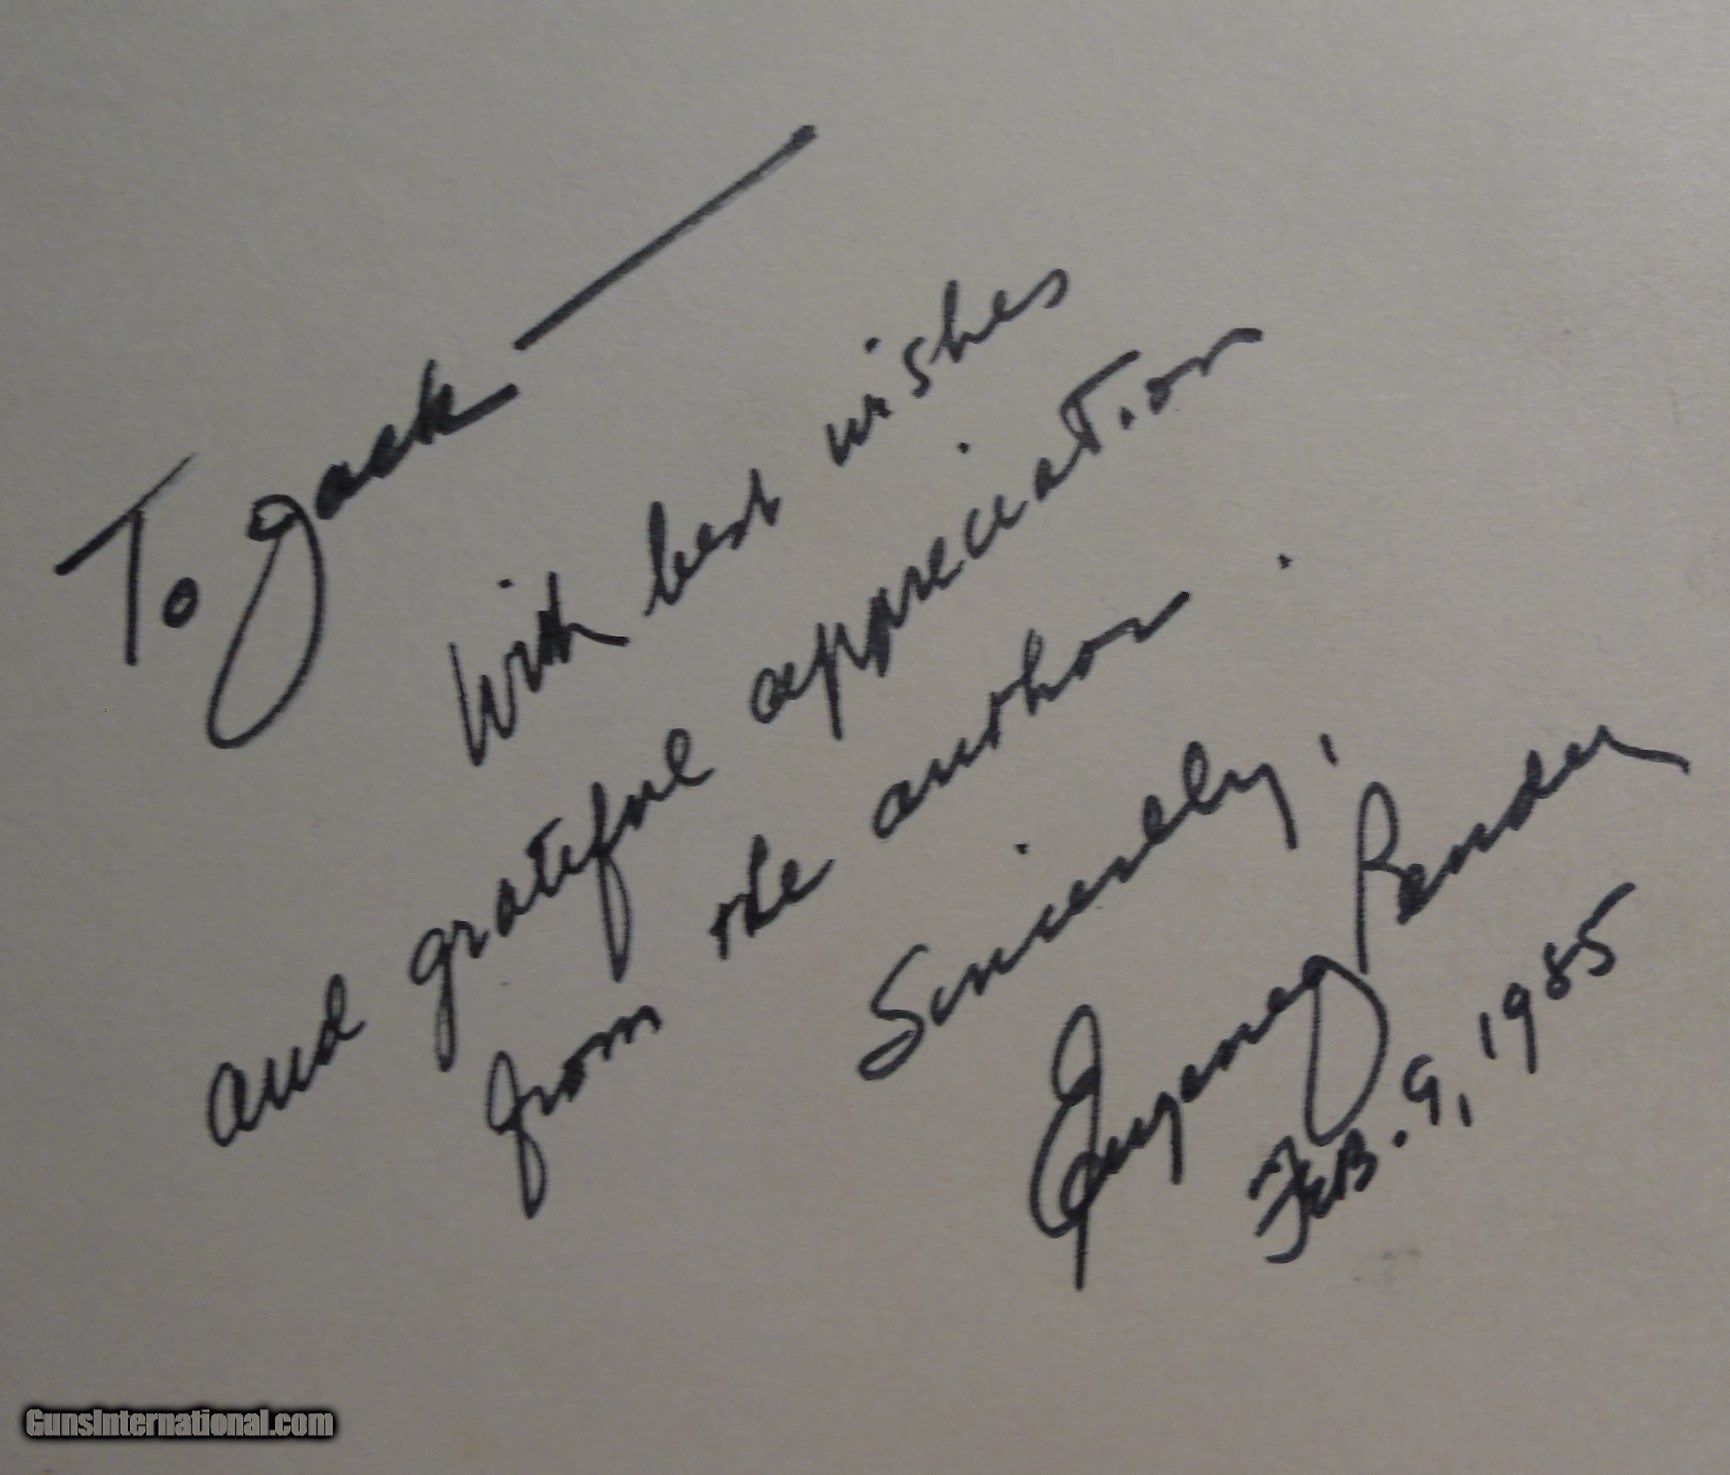 To Jack —
With best wishes
and grateful appreciation
from the author.
Sincerely,
Eugene J. Bender
Feb. 9, 1985
GunsInternational.com